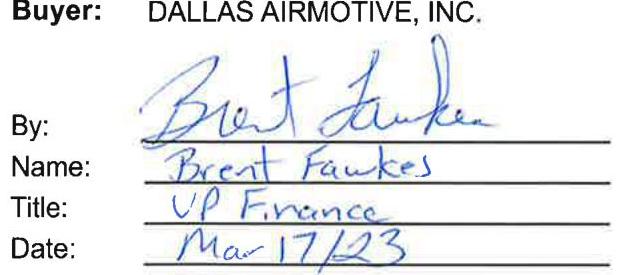 Buyer: DALLAS AIRMOTIVE, INC.
By: Brent Fawkes
Name: Brent Fawkes
Title: VP Finance
Date: Mar 17/23